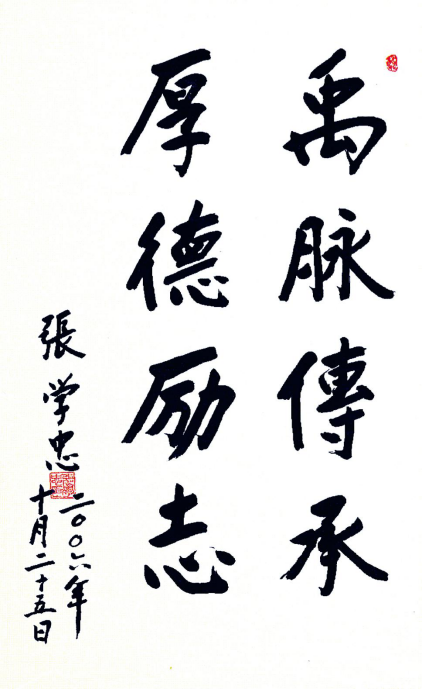 禹脉傳承
厚德励志
張学忠
二〇〇六年
十月二十五日